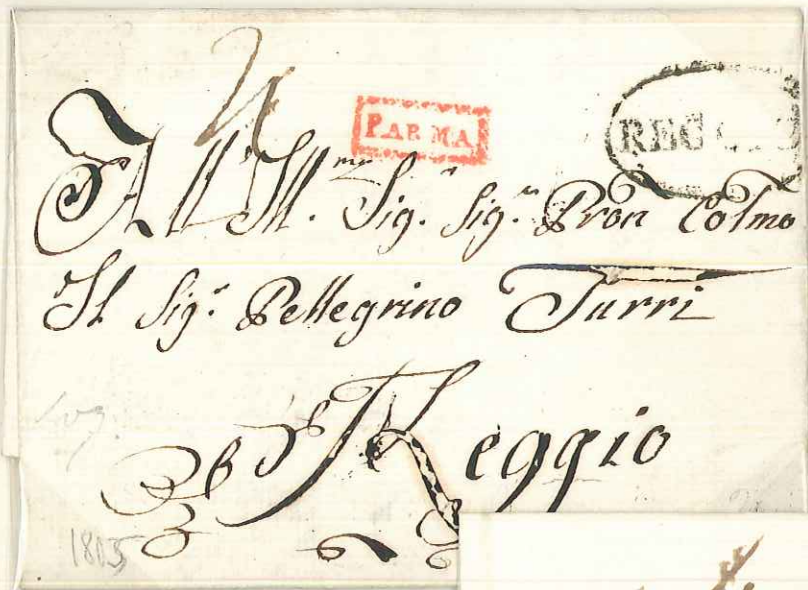 4
PARMA
REGGIO
All Ill.mo Sig.r Sig.r Pron Colmo
Il Sig.r Pellegrino Turri
Reggio
1805